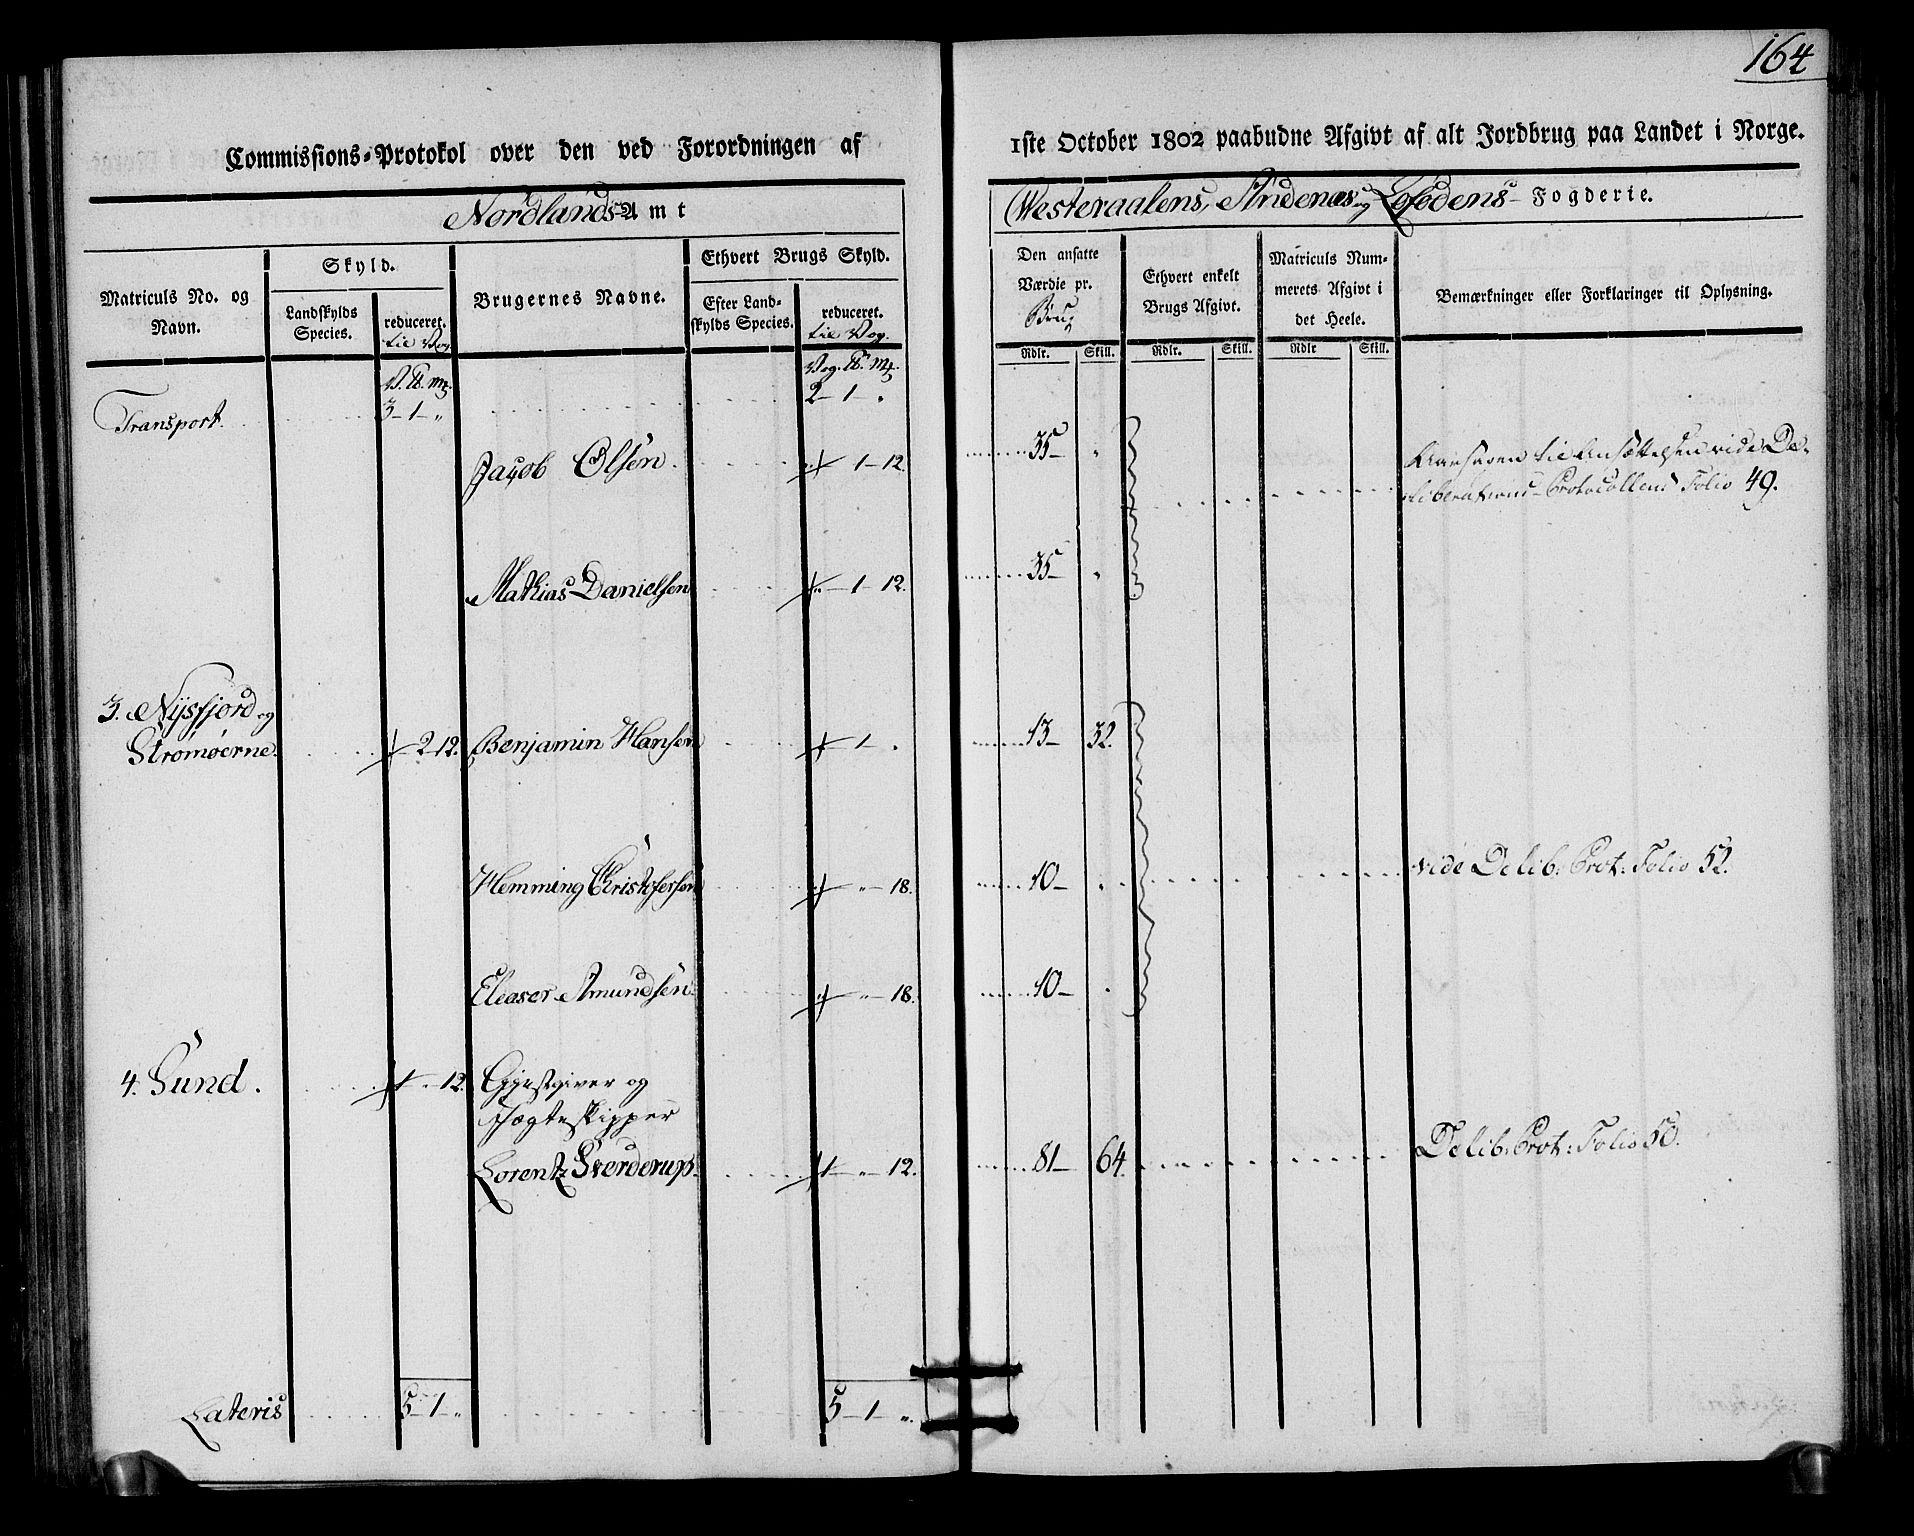 164
Commissions-Protokol over den ved Forordningen af
1ste October 1802 paabudne Afgivt af alt Jordbrug paa Landet i Norge.
Nordlands-Amt
Westeraalens, Andenæs og Lofodens-Fogderie.
Matriculs No. og Navn.
Skyld.
Landskylds Species.
reduceret. til Vog.
Brugernes Navne.
Ethvert Brugs Skyld.
Efter Landskylds Species.
reduceret. til Vog.
Den ansatte Værdie pr. Brug
Ethvert enkelt Brugs Afgivt.
Matriculs Nummerets Afgivt i det Heele.
Bemærkninger eller Forklaringer til Oplysning.
Rdlr. Skill. Rdlr. Skill. Rdlr Skill.
V. ℔. mk. Vog. ℔. mk.
Transport. 3-1-„ 2-1-„
Jacob Olsen. 1-12. 35-„ Aarsagen til Ansættelsen vide De-
liberations-Protocollens Folio 49.
Mathias Danielsen „-1-12. 35-„
3. Nysfjord og
Strømøerne. 2-12. Benjamin Hansen 1-„ 13-32.
Hemming Christofersen „-18. 10-„ vide Delib: Prot: Folio 52.
Eleaser Amundsen „-18. 10-„
4. Sund. 1-„-12. Gjestgiver og
Jægteskipper
Lorentz Sverderup 1-„-12. 81-64. Delib: Prot: Folio 50.
Lateris 5-1-„ 5-1-„